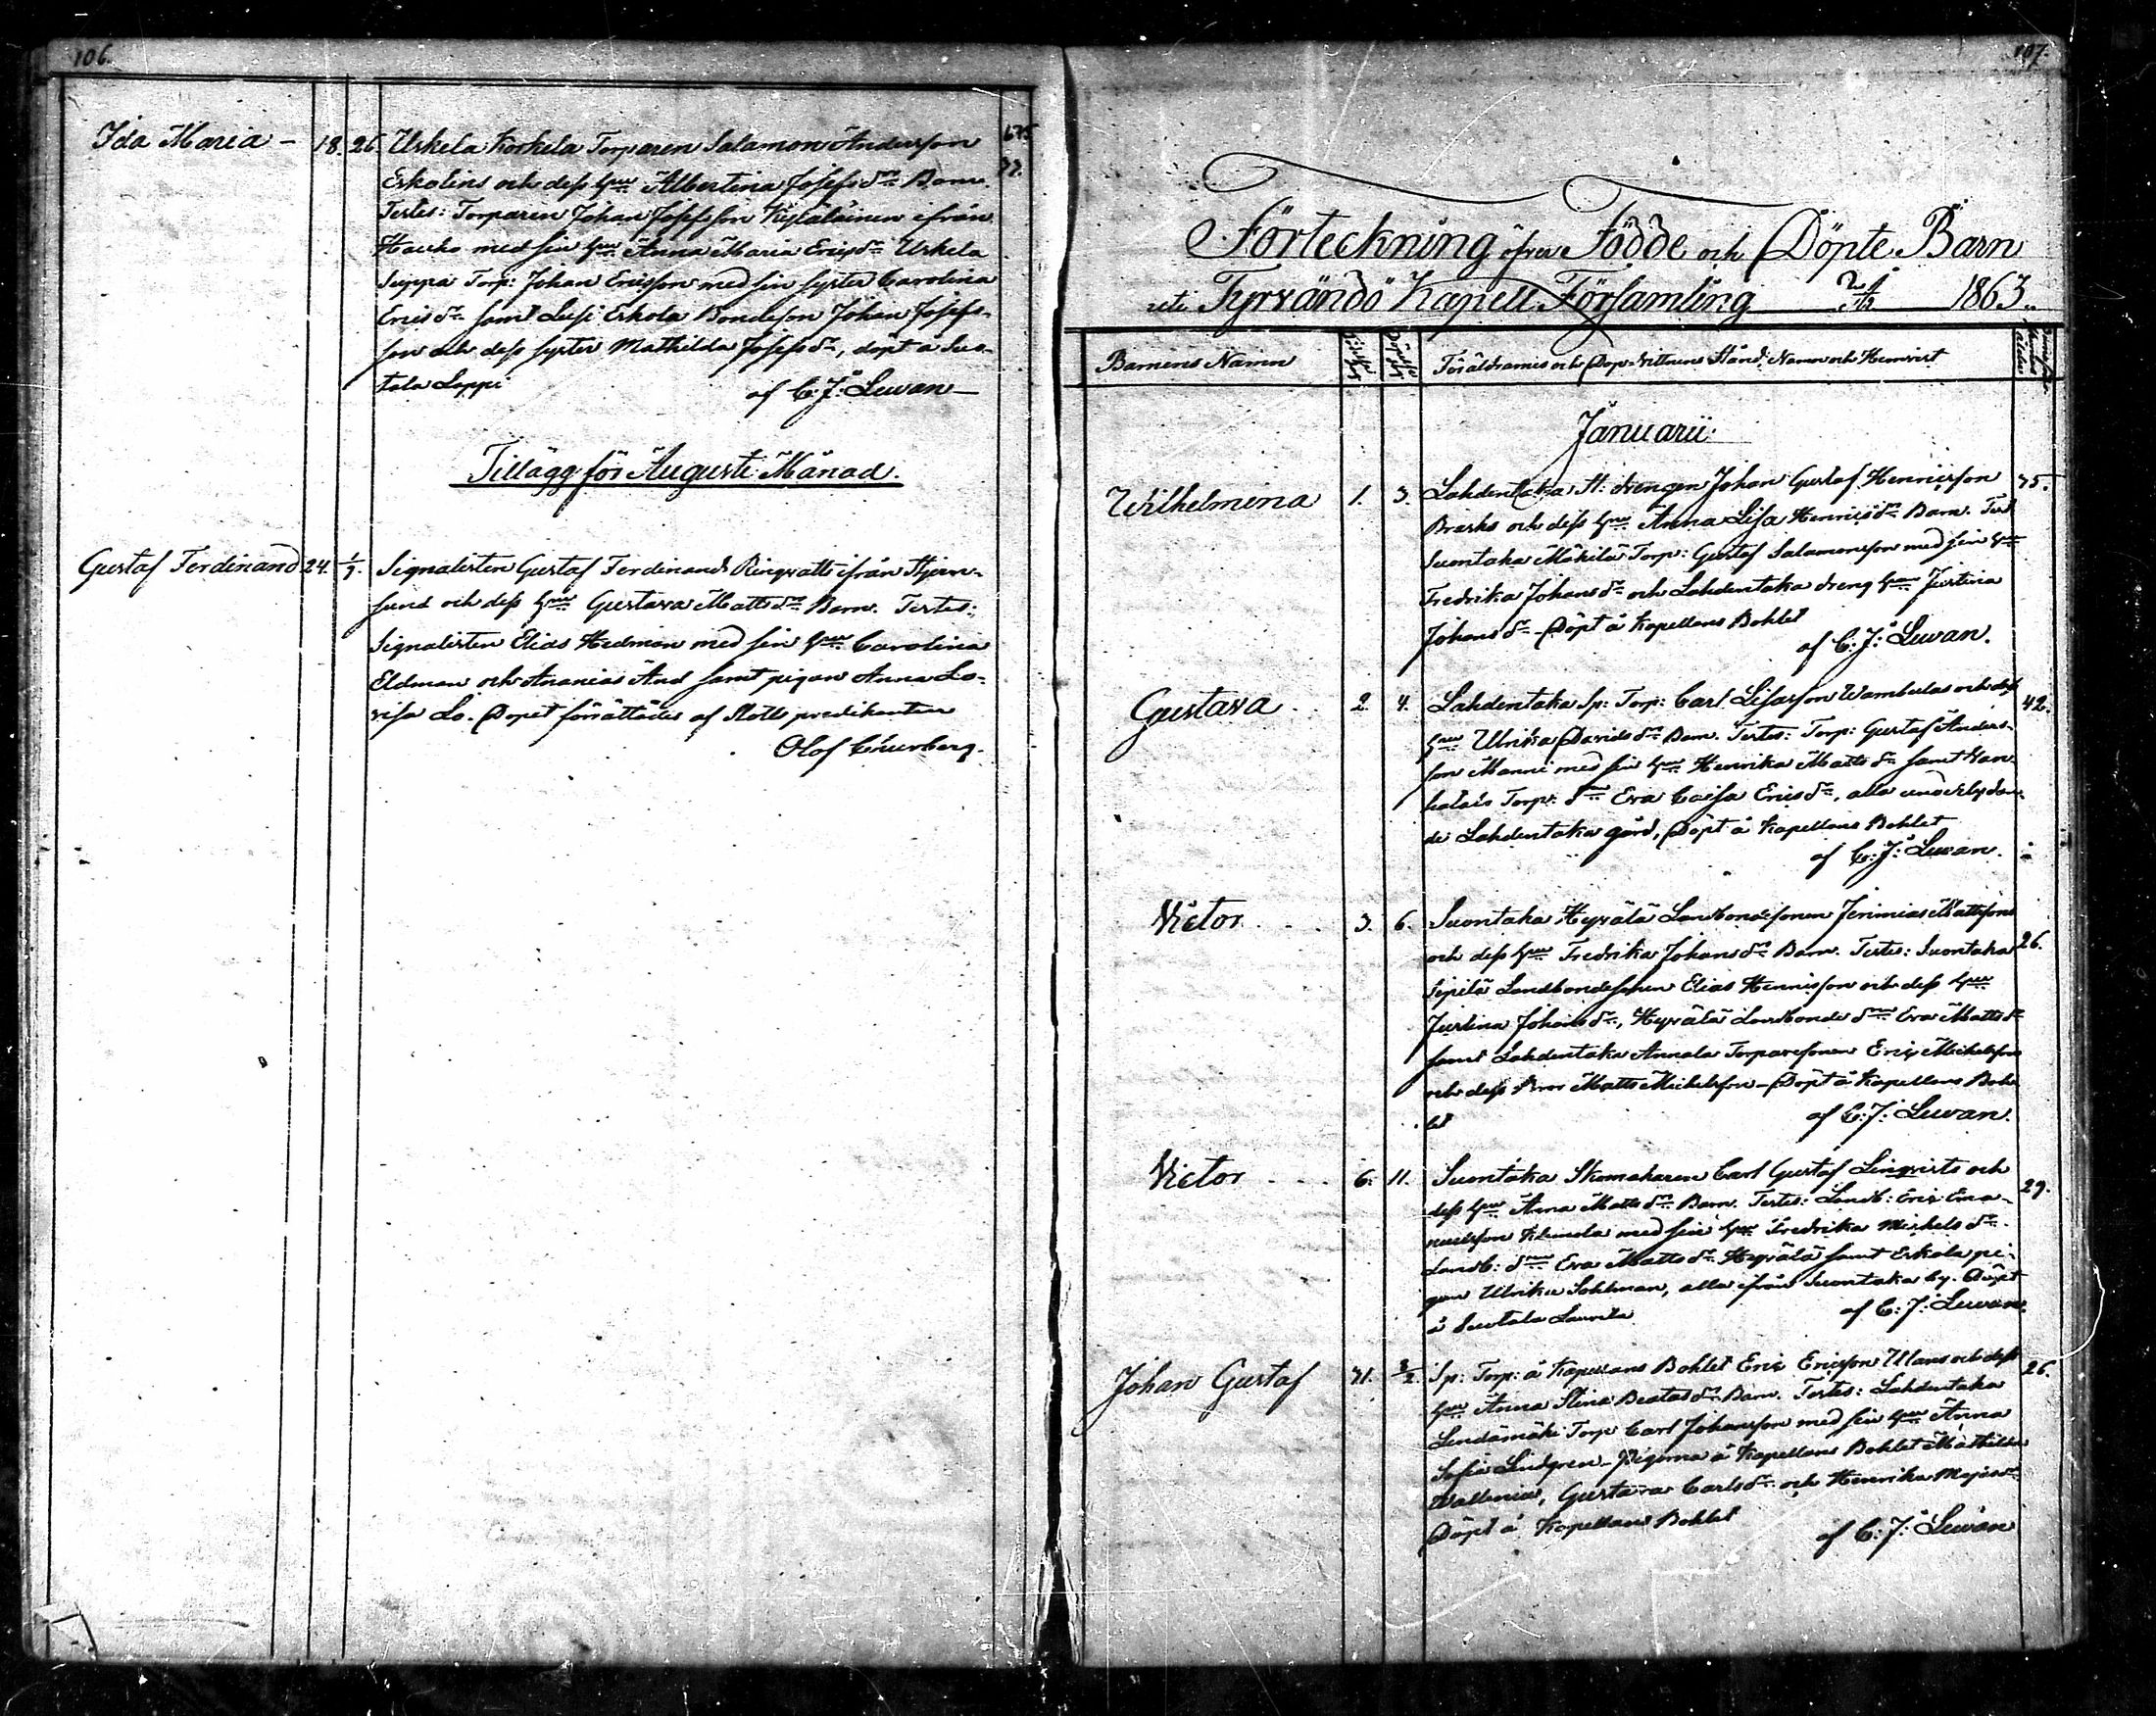 106.
Ida Maria - 18. 26. Urkela Korkela Torparen Salamon Andersson 675
Eskolins och dess hu Albertina Josefs dr Barn. 27.
Testes: Torparen Johan Josefsson ifrån
Hauho med sin hu Anna Maria Erics dr Urkela
Seppä Torp: Johan Ericsson med sin syster Carolina
Erics dr samt Eskola Bondeson Johan Josefs-
son och dess syster Mathilda Josefs dr, döpt å Suo-
tala Leppi
af C: J: Lewan
Tillägg för Augusti Månad.
Gustaf Ferdinand 24. 1/9. Signalisten Gustaf Ferdinand Ringvalls ifrån Stjern-
sund och dess hu Gustava Matts dr Barn. Testes:
Signalisten Elias Hedman med sin hu Carolina
Eldman och Ananias And samt pigan Anna Lo-
visa Lo. Dopet förrättades af Slotts predikanten
Olof
107.
Förteckning öfver Födde och Döpte Barn
uti Tyrvändö Kapell Församling 1863.
Barnens Namn Föräldrarnes och Dop-vittnens Stånd, Namn och Hemvist
Januarii
Wilhelmina 1. 3. Lahdentaka St: drengen Johan Gustaf Henricsson 35.
Brasks och dess hu Anna Lisa Henrics dr Barn. Test
Suontaka Mäkilä Torp: Gustaf Salamonsson med sin hu
Fredrika Johans dr och Lahdentaka dreng hu Justina
Johans dr - Döpt å Kapellans Bohlet
af C: J: Lewan.
Gustava . . 2. 4. Lahdentaka Sp: Torp: Carl Lisasson Wambulas och dess 42.
hu Ulrika Davids dr Barn. Testes: Torp: Gustaf Anders-
son Manni med sin hu Henrika Matts dr samt Van-
hatalo Torp: dr Eva Caisa Erics dr, alla underlydan-
de Lahdentaka gård, Döpt å Kapellans Bohlet
af C: J: Lewan.
Victor . . . 3. 6. Suontaka Hyrälä Landbondesonen Jeremias Mattssons
och dess hu Fredrika Johans dr Barn. Testes: Suontaka 26.
Sipilä Landbondesonen Elias Henricsson och dess hu
Justina Johans dr, Hyrälä Landbonde dr Eva Matts dr
samt Lahdentaka Annala Torparesonen Eric Michelsson
och dess Bror Matts Michelsson - Döpt å Kapellans Boh-
let
af C: J: Lewan.
Victor . . . 6. 11. Suontaka Skomakaren Carl Gustaf Linqvists och
dess hu Anna Matts dr Barn. Testes: Landb: Eric Ema- 29.
nuelsson Klemola med sin hu Fredrika Michels dr
Landb: dr Eva Matts dr Hyrälä samt Eskola pi-
gan Ulrika Sohlman, alla ifrån Suontaka by. Döpt
å Suotala Laurila
af C: J: Lewan.
Johan Gustaf 31. 3/2. Sp: Torp: å Kapellans Bohlet Eric Ericsson Ulans och dess 26.
hu Anna Stina Beatas dr Barn. Testes: Lahdentaka
Lendämäki Torp Carl Johansson med sin hu Anna
Sofia Lindgren - Pigorna å Kapellans Bohlet Mathilda
Wallenius, Gustava Carls dr och Henrika Majas dr
Döpt å Kapellans Bohlet
af C: J: Lewan